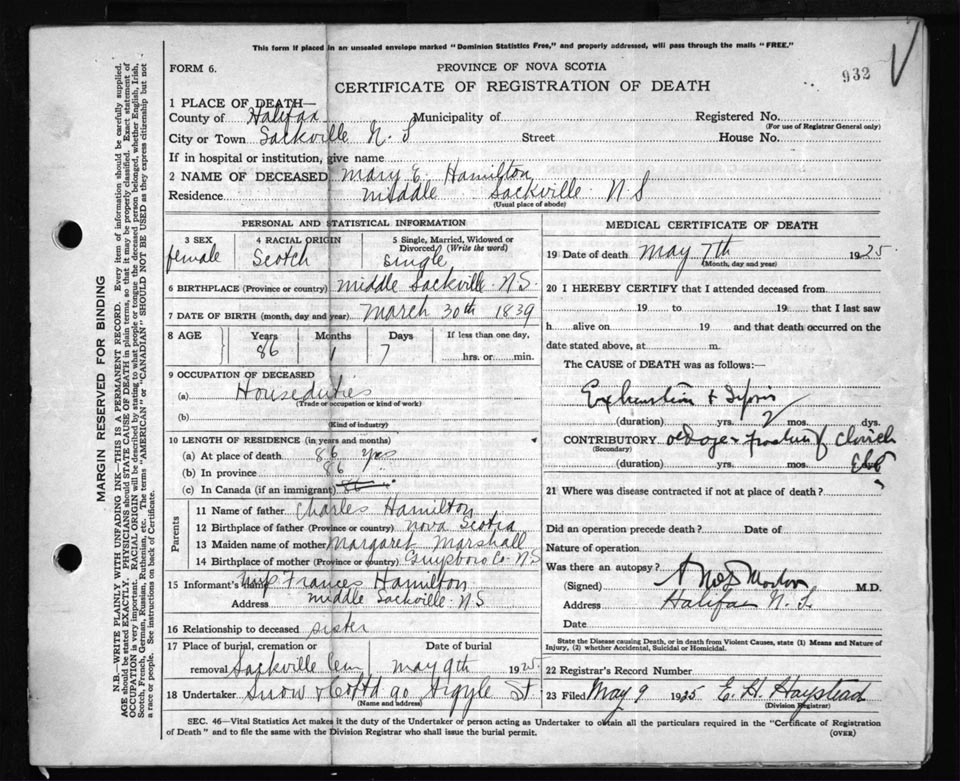 This form if placed in an unsealed envelope marked "Dominion Statistics Free," and properly addressed, will pass through the mails "FREE."
FORM 6.
PROVINCE OF NOVA SCOTIA
932
CERTIFICATE OF REGISTRATION OF DEATH
1 PLACE OF DEATH—
County of Halifax Municipality of Registered No.
(For use of Registrar General only)
City or Town Sackville N. S Street House No.
If in hospital or institution, give name
2 NAME OF DECEASED Mary E. Hamilton
Residence middle Sackville N S
(Usual place of abode)
PERSONAL AND STATISTICAL INFORMATION
3 SEX 4 RACIAL ORIGIN 5 Single, Married, Widowed or Divorced (Write the word)
female Scotch Single
6 BIRTHPLACE (Province or country) middle Sackville N.S.
7 DATE OF BIRTH (month, day and year) March 30th 1839
8 AGE Years Months Days If less than one day,
86 1 7 hrs. or min.
9 OCCUPATION OF DECEASED
(a) Houseduties
(Trade or occupation or kind of work)
(b)
(Kind of industry)
10 LENGTH OF RESIDENCE (in years and months)
(a) At place of death 86 yrs
(b) In province 86
(c) In Canada (if an immigrant) 86
Parents
11 Name of father Charles Hamilton
12 Birthplace of father (Province or country) Nova Scotia
13 Maiden name of mother Margaret Marshall
14 Birthplace of mother (Province or country) Guysboro Co. N S
15 Informant's name Frances Hamilton
Address middle Sackville N S
16 Relationship to deceased sister
17 Place of burial, cremation or Date of burial
removal Sackville Cem May 9th 1925
18 Undertaker Snow & Co Ltd 90 Argyle St
(Name and address)
MEDICAL CERTIFICATE OF DEATH
19 Date of death May 7th 1925
(Month, day and year)
20 I HEREBY CERTIFY that I attended deceased from
19 to 19 that I last saw
h alive on 19 and that death occurred on the
date stated above, at m.
The CAUSE of DEATH was as follows:—
Exhaustion &
(duration) yrs. mos.
CONTRIBUTORY old age & fracture of
(Secondary)
(duration) yrs. mos.
21 Where was disease contracted if not at place of death?
Did an operation precede death? Date of
Nature of operation
Was there an autopsy?
(Signed) M.D.
Address Halifax N. S.
Date
State the Disease causing Death, or in death from Violent Causes, state (1) Means and Nature of Injury, (2) whether Accidental, Suicidal or Homicidal.
22 Registrar's Record Number
23 Filed May 9 1925 E. H. Haystead
(Division Registrar)
SEC. 46—Vital Statistics Act makes it the duty of the Undertaker or person acting as Undertaker to obtain all the particulars required in the "Certificate of Registration
of Death" and to file the same with the Division Registrar who shall issue the burial permit.
(OVER)
MARGIN RESERVED FOR BINDING
N.B.—WRITE PLAINLY WITH UNFADING INK—THIS IS A PERMANENT RECORD. Every item of information should be carefully supplied.
AGE should be stated EXACTLY. PHYSICIANS should STATE CAUSE OF DEATH in plain terms, so that it may be properly classified. Exact statement of
OCCUPATION is very important. RACIAL ORIGIN will be described by stating to what people or tongue the deceased person belonged, whether English, Irish,
Scotch, French, German, Russian, Ruthenian, etc. The terms "AMERICAN" or "CANADIAN" SHOULD NOT BE USED as they express citizenship but not
a race or people. See instructions on back of Certificate.